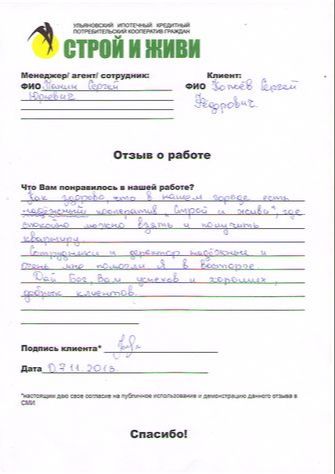 УЛЬЯНОВСКИЙ ИПОТЕЧНЫЙ КРЕДИТНЫЙ
ПОТРЕБИТЕЛЬСКИЙ КООПЕРАТИВ ГРАЖДАН
СТРОЙ И ЖИВИ
Менеджер/ агент/ сотрудник: Клиент:
ФИО Панин Сергей ФИО Сергей
Юрьевич Федорович
Отзыв о работе
Что Вам понравилось в нашей работе?
Как здорово, что в нашем городе есть
надёжный кооператив "Строй и живи", где
спокойно можно взять и получить
квартиру.
Сотрудники и директор надёжные и
очень мне помогли я в восторге.
Дай Бог, Вам успехов и хороших,
добрых клиентов.
Подпись клиента*
Дата 07.11.2013
*настоящим даю свое согласие на публичное использование и демонстрацию данного отзыва в
СМИ
Спасибо!